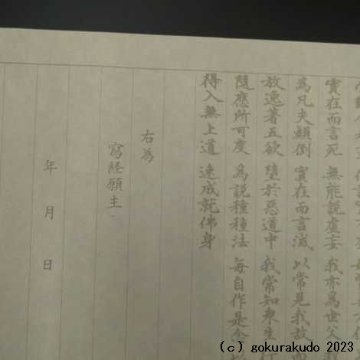 實在而言死 無能說虛妄 我亦為世父
為凡夫顛倒 實在而言滅 以常見我故
放逸著五欲 墮於惡道中 我常知衆生
隨應所可度 為說種種法 每自作是
得入無上道 速成就佛身
右為
寫経願主
年 月 日
(c) gokurakudo 2023